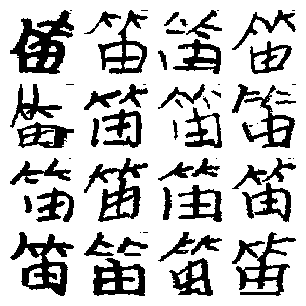 笛笛笛笛
笛笛笛笛
笛笛笛笛
笛笛笛笛